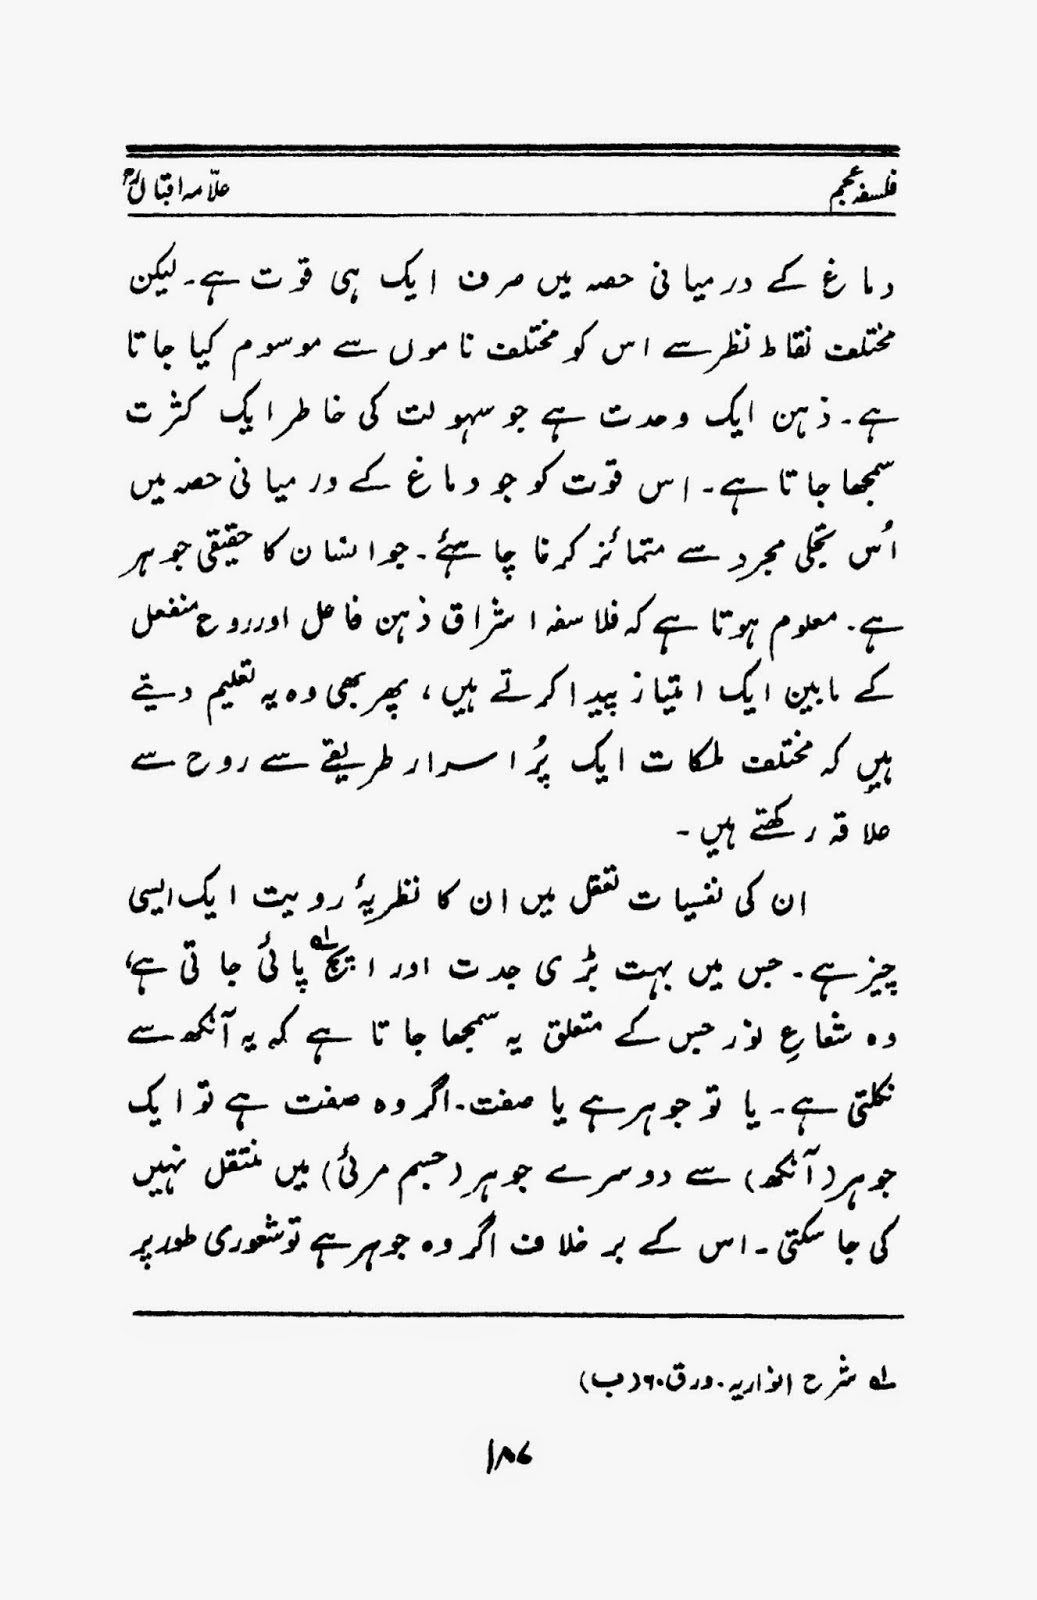 فلسفۂ عجم
علّامہ اقبالؒ
دماغ کے درمیانی حصہ میں صرف ایک ہی قوت ہے۔ لیکن
مختلف نقاط نظر سے اس کو مختلف ناموں سے موسوم کیا جاتا
ہے۔ ذہن ایک وحدت ہے جو سہولت کی خاطر ایک کثرت
سمجھا جاتا ہے۔ اس قوت کو جو دماغ کے درمیانی حصہ میں
اُس تجلی مجرد سے متمائز کرنا چاہئے۔ جو انسان کا حقیقی جوہر
ہے۔ معلوم ہوتا ہے کہ فلاسفہ اشراق ذہن فاعل اور روح منفعل
کے مابین ایک امتیاز پیدا کرتے ہیں، پھر بھی وہ یہ تعلیم دیتے
ہیں کہ مختلف ملکات ایک پُراسرار طریقے سے روح سے
علاقہ رکھتے ہیں۔
ان کی نفسیات تعقل میں ان کا نظریۂ رویت ایک ایسی
چیز ہے۔ جس میں بہت بڑی جدت اور اپچ لہ پائی جاتی ہے،
وہ شعاعِ نور جس کے متعلق یہ سمجھا جاتا ہے کہ یہ آنکھ سے
نکلتی ہے۔ یا تو جوہر ہے یا صفت۔ اگر وہ صفت ہے تو ایک
جوہر (آنکھ) سے دوسرے جوہر (جسم مرئی) میں منتقل نہیں
کی جا سکتی۔ اس کے برخلاف اگر وہ جوہر ہے تو شعوری طور پر
لہ شرح انواریہ۔ ورق ۶۰ (ب)
۱۸۶